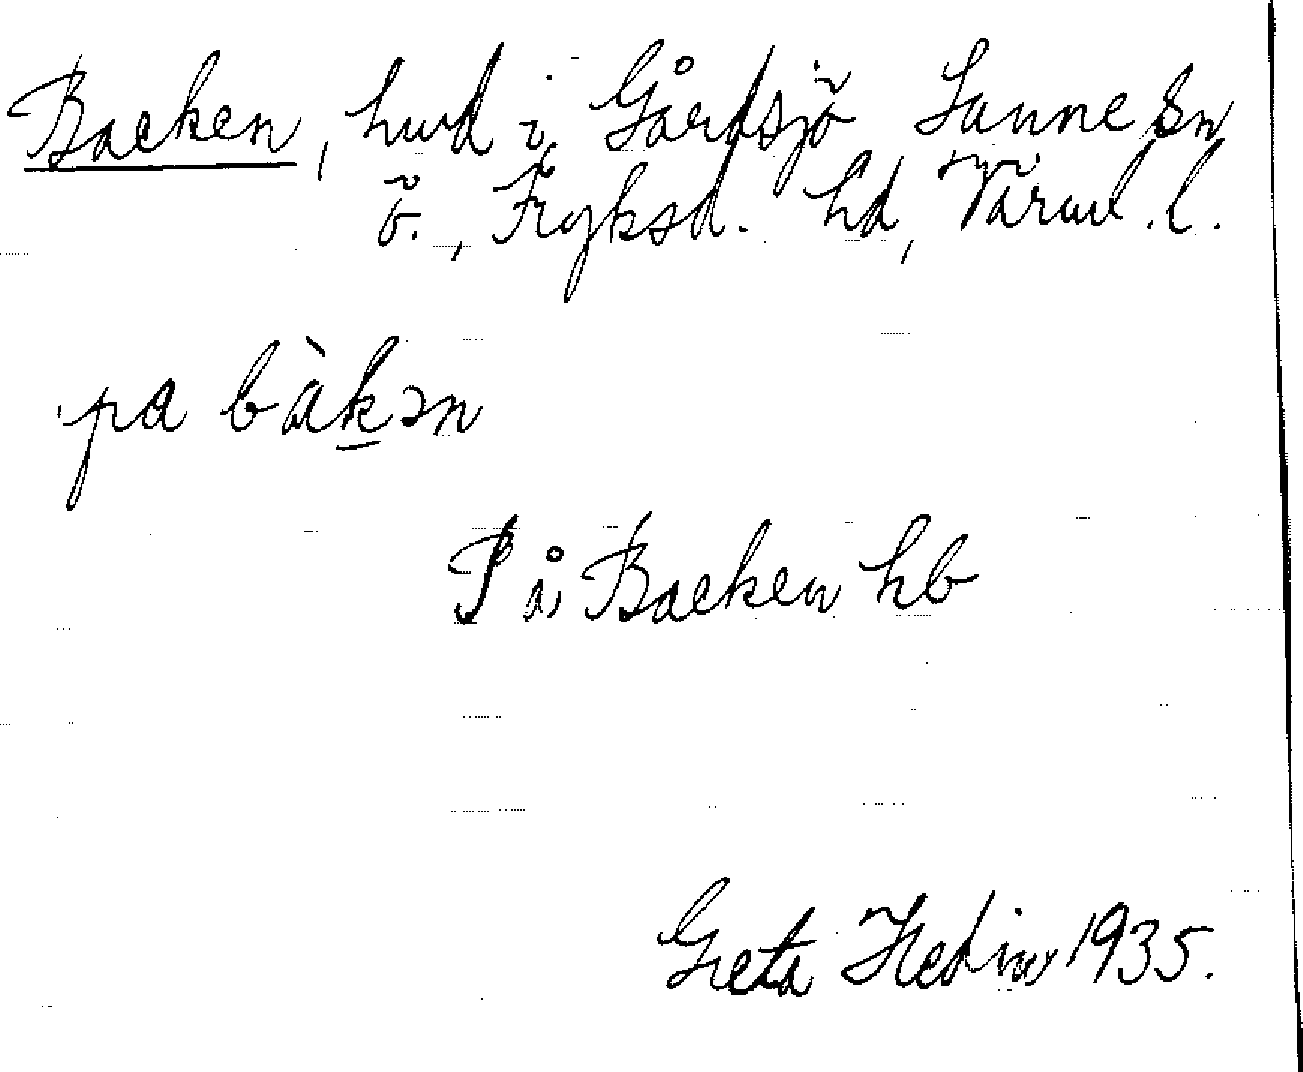 Backen, hmd i Gårdsjö Sunne sn
ö., Fryksd. hd, Värml. l.
pa bàkən
På Backen hb
Greta Hedin 1935.